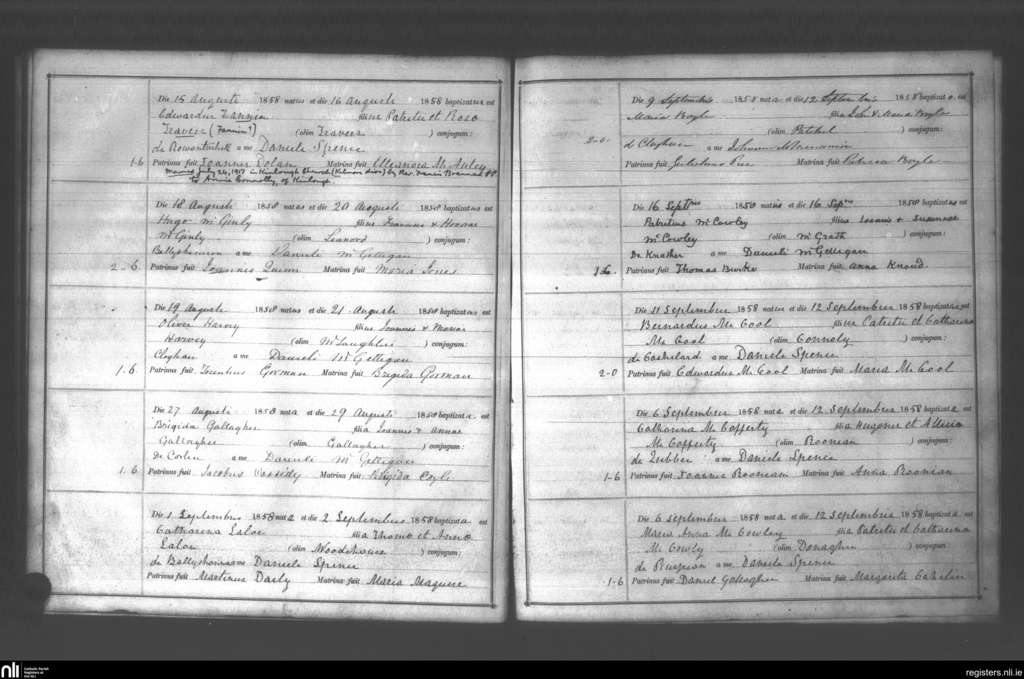 Die 15 Augusti 1858 natus et die 16 Augusti 1858 baptizatus est
Edwardus Fannin filius Patritii et Rosa
Travers (Fannin?) (olim Travers ) conjugum:
de a me Daniele Spence
1-6 Patrinus fuit Joannes Dolan Matrina fuit Elleanora McAuley
Married July 26, 1917 in Kinlough Church (Kilmore dioc) by Rev. Francis Brennan PP.
to Annie Connolly, of Kinlough
Die 18 Augusti 1858 natus et die 20 Augusti 1858 baptizatus est
Hugo McGinly filius Joannis &
McGinly (olim Leonard ) conjugum:
a me Danieli McGettigan
2-6 Patrinus fuit Joannes Quinn Matrina fuit Maria Jones
Die 19 Augusti 1858 natus et die 21 Augusti 1858 baptizatus est
Oliver Harvy filius Joannis & Mariae
Harvey (olim McLaughlin ) conjugum:
Cloghan a me Danieli McGettigan
1-6 Patrinus fuit Gorman Matrina fuit Brigida Gorman
Die 27 Augusti 1858 nata et die 29 Augusti 1858 baptizata est
Brigida Gallagher filia Joannis & Annae
Gallagher (olim Gallagher ) conjugum:
De Corlin a me Danieli McGettigan
1-6 Patrinus fuit Jacobus Cassidy Matrina fuit Brigida Coyle
Die 1 Septembris 1858 nata et die 2 Septembris 1858 baptizata est
Catharina Lalor filia Thoma et Anna
Lalor (olim Woodhouse ) conjugum:
de Ballyshannon a me Daniele Spence
Patrinus fuit Martinus Daily Matrina fuit Maria Maguire
Die 9 Septembris 1858 nata et die 12 Septembris 1858 baptizata est
Maria Boyle filia Joh & Maria Boyle
(olim ) conjugum:
2-0 d Cloghan a me
Patrinus fuit Matrina fuit Patricia Boyle
Die 16 Septbris 1858 natus et die 16 1858 baptizatus est
Patritius McCowley filius Joannis & Susannae
McCowley (olim McGrath ) conjugum:
De Knather a me Danieli McGettigan
1-6 Patrinus fuit Thomas Burke Matrina fuit Anna
Die 11 Septembris 1858 natus et die 12 Septembris 1858 baptizatus est
Bernardus McCool filius Patritii et Catharina
McCool (olim Connoly ) conjugum:
de Cashelard a me Daniele Spence
2-0 Patrinus fuit Edwardus McCool Matrina fuit Maria McCool
Die 6 Septembris 1858 nata et die 12 Septembris 1858 baptizata est
Catharina McCafferty filia et
McCafferty (olim Roonian ) conjugum:
de a me Daniele Spence
1-6 Patrinus fuit Joannes Roonian Matrina fuit Anna Roonian
Die 6 Septembris 1858 nata et die 12 Septembris 1858 baptizata est
Maria Anna McCowley filia Patritii et Catharina
McCowly (olim Donagher ) conjugum:
de a me Daniele Spence
1-6 Patrinus fuit Daniel Gallagher Matrina fuit Margarita
nli Catholic Parish Registers at the NLI
registers.nli.ie